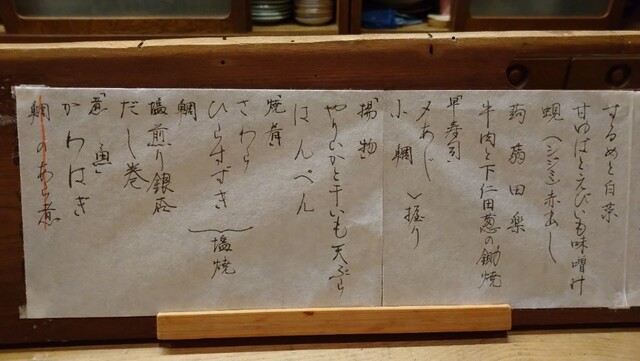 するめと白菜
甘鯛とえびいも味噌汁
蜆(シジミ)赤出し
蒟蒻田楽
牛肉と下仁田葱の鋤焼
「早寿司」
〆あじ
小鯛 〉握り
「揚物」
やりいかと干いも天ぷら
はんぺん
「焼肴」
さわら
ひらすずき
鯛 }塩焼
塩煎り銀杏
だし巻
「煮魚」
かわはぎ
鯛のあら煮